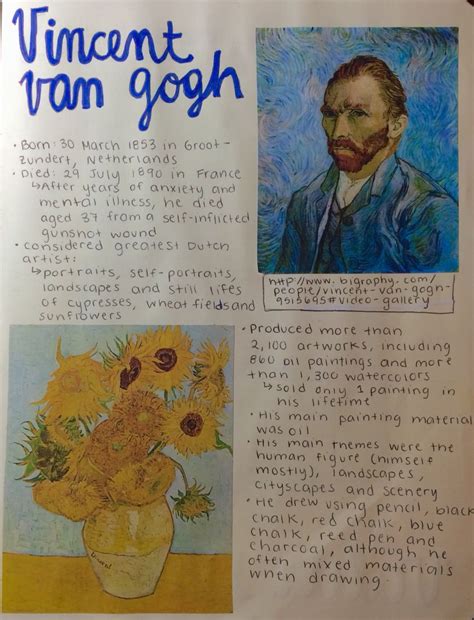 Vincent
van gogh
• Born: 30 March 1853 in Groot-
zundert, Netherlands
• Died: 29 July 1890 in France
↳After years of anxiety and
mental illness, he died
aged 37 from a self-inflicted
gunshot wound
• considered greatest Dutch
artist:
↳portraits, self-portraits,
landscapes and still lifes
of cypresses, wheat fields and
sunflowers
http://www.biography.com/
people/vincent-van-gogh-
9515695#video-gallery
• Produced more than
2,100 artworks, including
860 oil paintings and more
than 1,300 watercolors
↳ sold only 1 painting in
his lifetime
• His main painting material
was oil
• His main themes were the
human figure (himself
mostly), landscapes,
cityscapes and scenery
• He drew using pencil, black
chalk, red chalk, blue
chalk, reed pen and
charcoal, although he
often mixed materials
when drawing.
Vincent